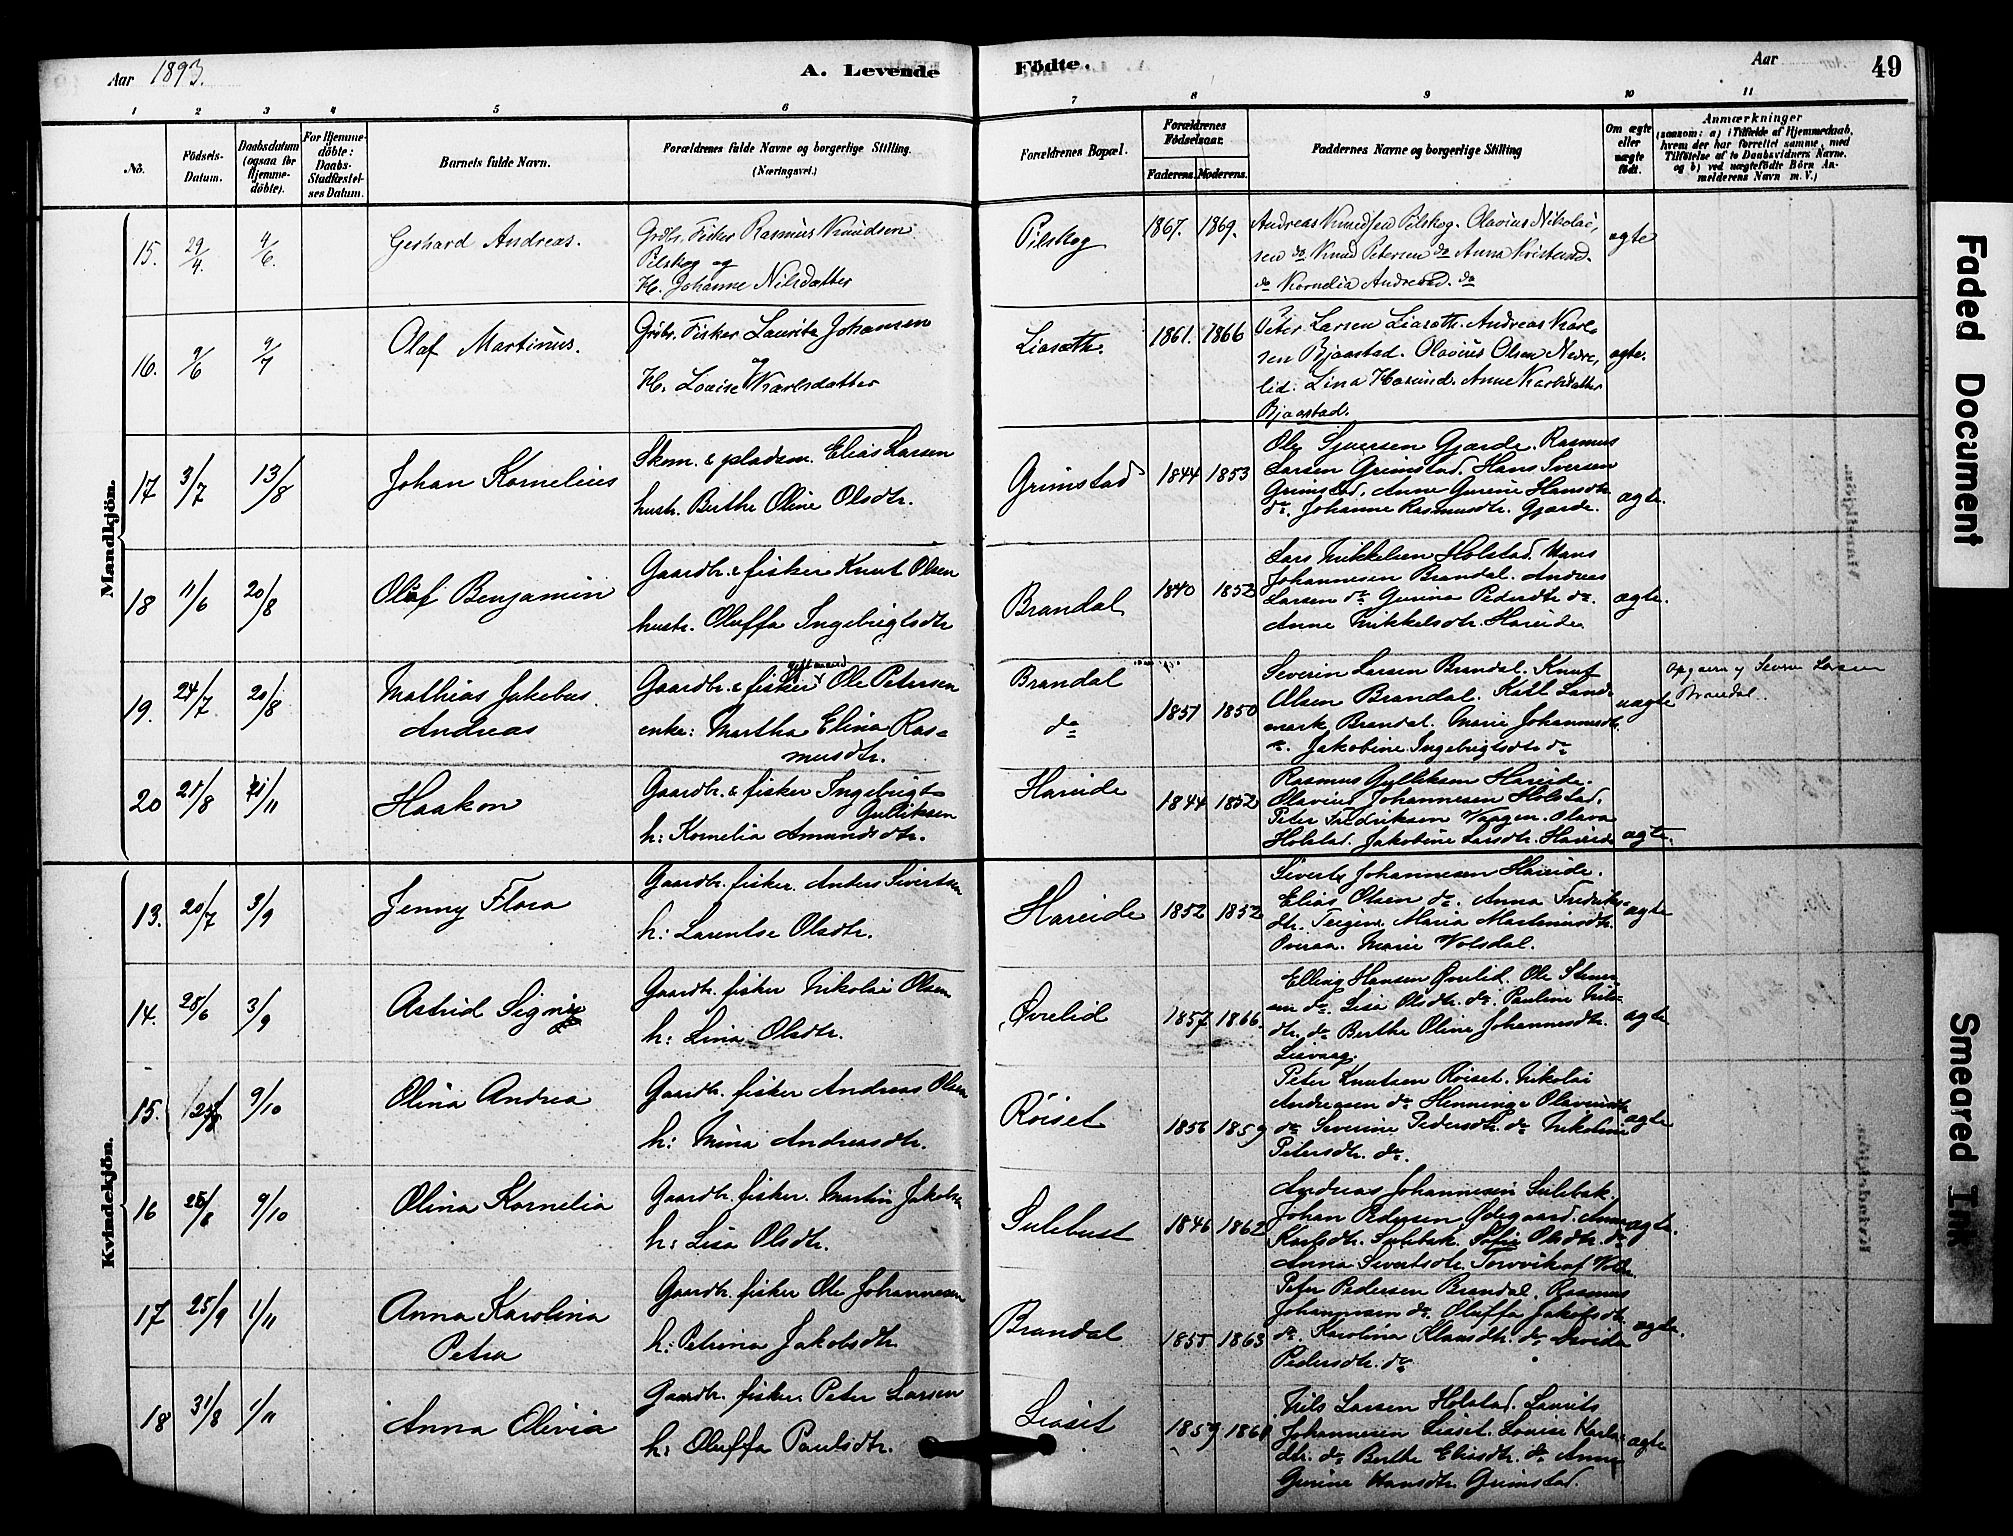 Aar 1893.
A. Levende
Födte.
Aar
49
1 2 3 4 5 6 7 8 9 10 11
No.
Födsels-Datum.
Daabsdatum (ogsaa for Hjemmedöbte).
For Hjemmedöbte: Daabs-Stadfæstelses Datum.
Barnets fulde Navn.
Forældrenes fulde Navne og borgerlige Stilling. (Næringsvei.)
Forældrenes Bopæl.
Forældrenes Födselsaar.
Faderens. Moderens.
Faddernes Navne og borgerlige Stilling
Om ægte eller uægte födt.
Anmærkninger
(saasom: a) i Tilfælde af Hjemmedaab, hvem der har forrettet samme, med Tilföielse af to Daabsvidners Navne, og b) ved uægtefödte Börn Anmelderens Navn m. V.)
Mandkjön.
15. 29/4. 4/6. Gerhard Andreas. Grdbr. Fisker Rasmus Knudsen Pilskog 1867. 1869. Andreas Knudsen Pilskog. Olavius Nikolai,
Pilskog og sen do Knud Petersen do Anna Kristensd. ægte
H. Johanne Nilsdatter do Kornelia Andresd. do
16. 9/6 9/7 Olaf Martinus. Grdbr. Fisker Laurits Johansen Liaseth. 1861. 1866 Peter Larsen Liaseth. Andreas Karl
og sen Bjaastad. Olavius Olsen Nedre, ægte.
H. Louise Karlsdatter lid. Lina Hasund. Anne Karlsdatter
Bjaastad.
17 3/7 13/8 Johan Kornelius Skom. & pladsm. Elias Larsen Grimstad 1844 1853 Ole Sjursen Gjærde. Rasmus
Larsen Grimstad. Hans Iversen
hustr. Berthe Oline Olsdtr. Grimstad. Anne Gurine Hansdtr ægte.
do. Johanne Rasmusdtr. Gjærde.
18 11/6 20/8 Olaf Benjamin Gaardbr. & fisker Knut Olsen Brandal 1840 1852 Lars Mikkelsen Holstad. Hans
Johannesen Brandal. Andreas
hustr. Oluffa Ingebrigtsdtr Larsen do Gurina Pedersdtr do. ægte.
Anne Mikkelsdtr. Hareide
19. 24/7 20/8 Mathias Jakobus Andreas Gaardbr. & fisker gift mand Ole Petersen Brandal 1851 1850 Severin Larsen Brandal. Knut
Olsen Brandal. Ketil Land- uægte
enke: Martha Elina Ras= do mark Brandal. Marie Johannesdtr.
musdtr. do. Jakobine Ingebrigtsdtr do
Brandal.
20 21/8 11/11 Haakon Gaardbr. & fisker Ingebrigt Gulliksen Hareide 1844 1852 Rasmus Gulliksen Hareide.
Olavius Johannesen Holstad.
Peter Fredriksen Vaagen. Olava
h: Kornelia Amundsdtr. Holstad. Jakobine Larsdtr. Hareide ægte.
Kvindekjön.
13. 20/7 3/9 Jenny Flora Gaardbr. fisker. Anders Sivertsen Hareide 1852 1852 Sivert Johannesen Hareide.
Elias Olsen do. Anna Fredriks- ægte
h: Larentse Olsdtr. dtr. Teigen. Maria Martinusdtr.
Overaa. Marie Volsdal.
14. 28/6 3/9 Astrid Signe Gaardbr. fisker Nikolai Olsen Øvrelid 1857 1866 Elling Hansen Øvrelid. Ole
sen do. Lisa Olsdtr. do. Pauline Nils- ægte
h: Lina Olsdtr. dtr. do Berthe Oline Johannesdtr.
Liavaag.
15. 9/10 Olina Andrea Gaardbr. fisker Andreas Olsen Röiset 1856 1859 Peter Knutsen Röiset. Nikolai
Andreasen do Henninge Olavusdtr
h: Mina Andreasdtr. do Severine Pedersdtr. do Nikoline ægte
Petersdtr. do.
16 25/8 9/10 Olina Kornelia Gaardbr. fisker. Martin Jakobsen Sulebust 1846 1862 Andreas Johannesen Sulebak.
Johan Pedersen Ødegaard. Anne ægte.
h: Lisa Olsdtr. Karlsdtr. Sulebak. Sofie Olsdtr. do
Anna Sivertsdtr Torvik af
17 25/9 1/11 Anna Karolina Petra Gaardbr. fisker Ole Johannesen Brandal 1855 1863 Peter Pedersen Brandal. Rasmus
Johannesen do. Oluffa Jakobsdtr
h: Petrina Jakobsdtr do. Karolina Klausdtr. do ægte.
Pedersdtr. do
18 31/8 1/11 Anna Olivia Gaardbr. fisker. Peter Larsen Liaset 1859 1861 Nils Larsen Holstad. Laurits
Johannesen Liaset. Louise Karls-
h: Oluffa Paulsdtr. dtr. do Berthe Eliasdtr. do Anne ægte
Gurine Hansdtr Grimstad.
Faded Document
Smeared Ink